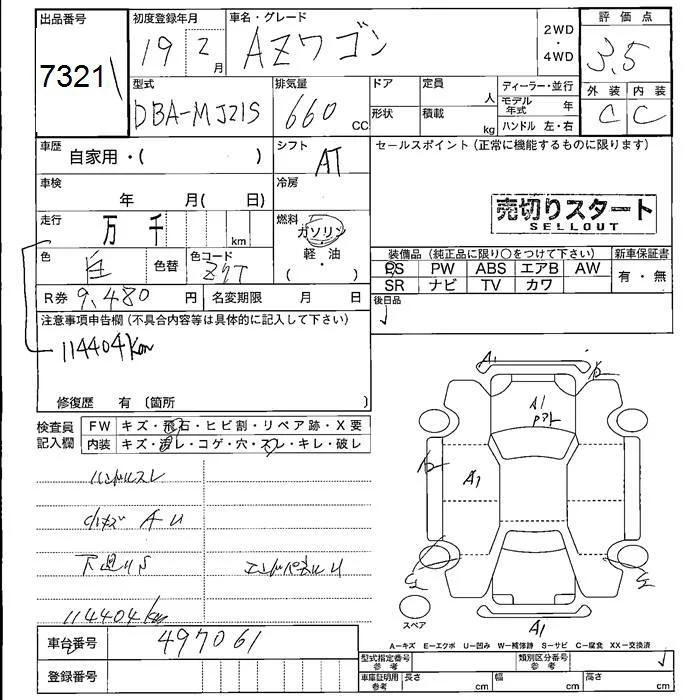 出品番号 初度登録年月 車名・グレード 2WD・4WD 評価点
7321 19 2月 AZワゴン 3.5
型式 排気量 ドア 定員 人 ディーラー・並行 外装 内装
DBA-MJ21S 660 CC 形状 積載 kg モデル年式 年 C C
ハンドル 左・右
車歴 自家用・( ) シフト AT セールスポイント (正常に機能するものに限ります)
車検 年 月( 日) 冷房
売切りスタート
SELLOUT
走行 万 千 km 燃料 ガソリン 軽・油 ( )
色 白 色替 色コード Z7T 装備品 (純正品に限り○をつけて下さい) 新車保証書
PS PW ABS エアB AW 有・無
SR ナビ TV カワ
R券 9,480 円 名変期限 月 日 後日品
注意事項申告欄 (不具合内容等は具体的に記入して下さい)
114404km
修復歴 有 〔箇所 〕
検査員記入欄 FW キズ・飛石・ヒビ割・リペア跡・X要
内装 キズ・汚レ・コゲ・穴・スレ・キレ・破レ
ハンドルスレ
小キズ A U
下廻りS エンドパネルU
114404km
A1
A1
A1
スペア
A1
A-キズ E-エクボ U-凹み W-補修跡 S-サビ C-腐食 XX-交換済
車台番号 497061
型式指定番号 参考 類別区分番号 参考
登録番号 車庫証明用 参考 長さ cm 幅 cm 高さ cm